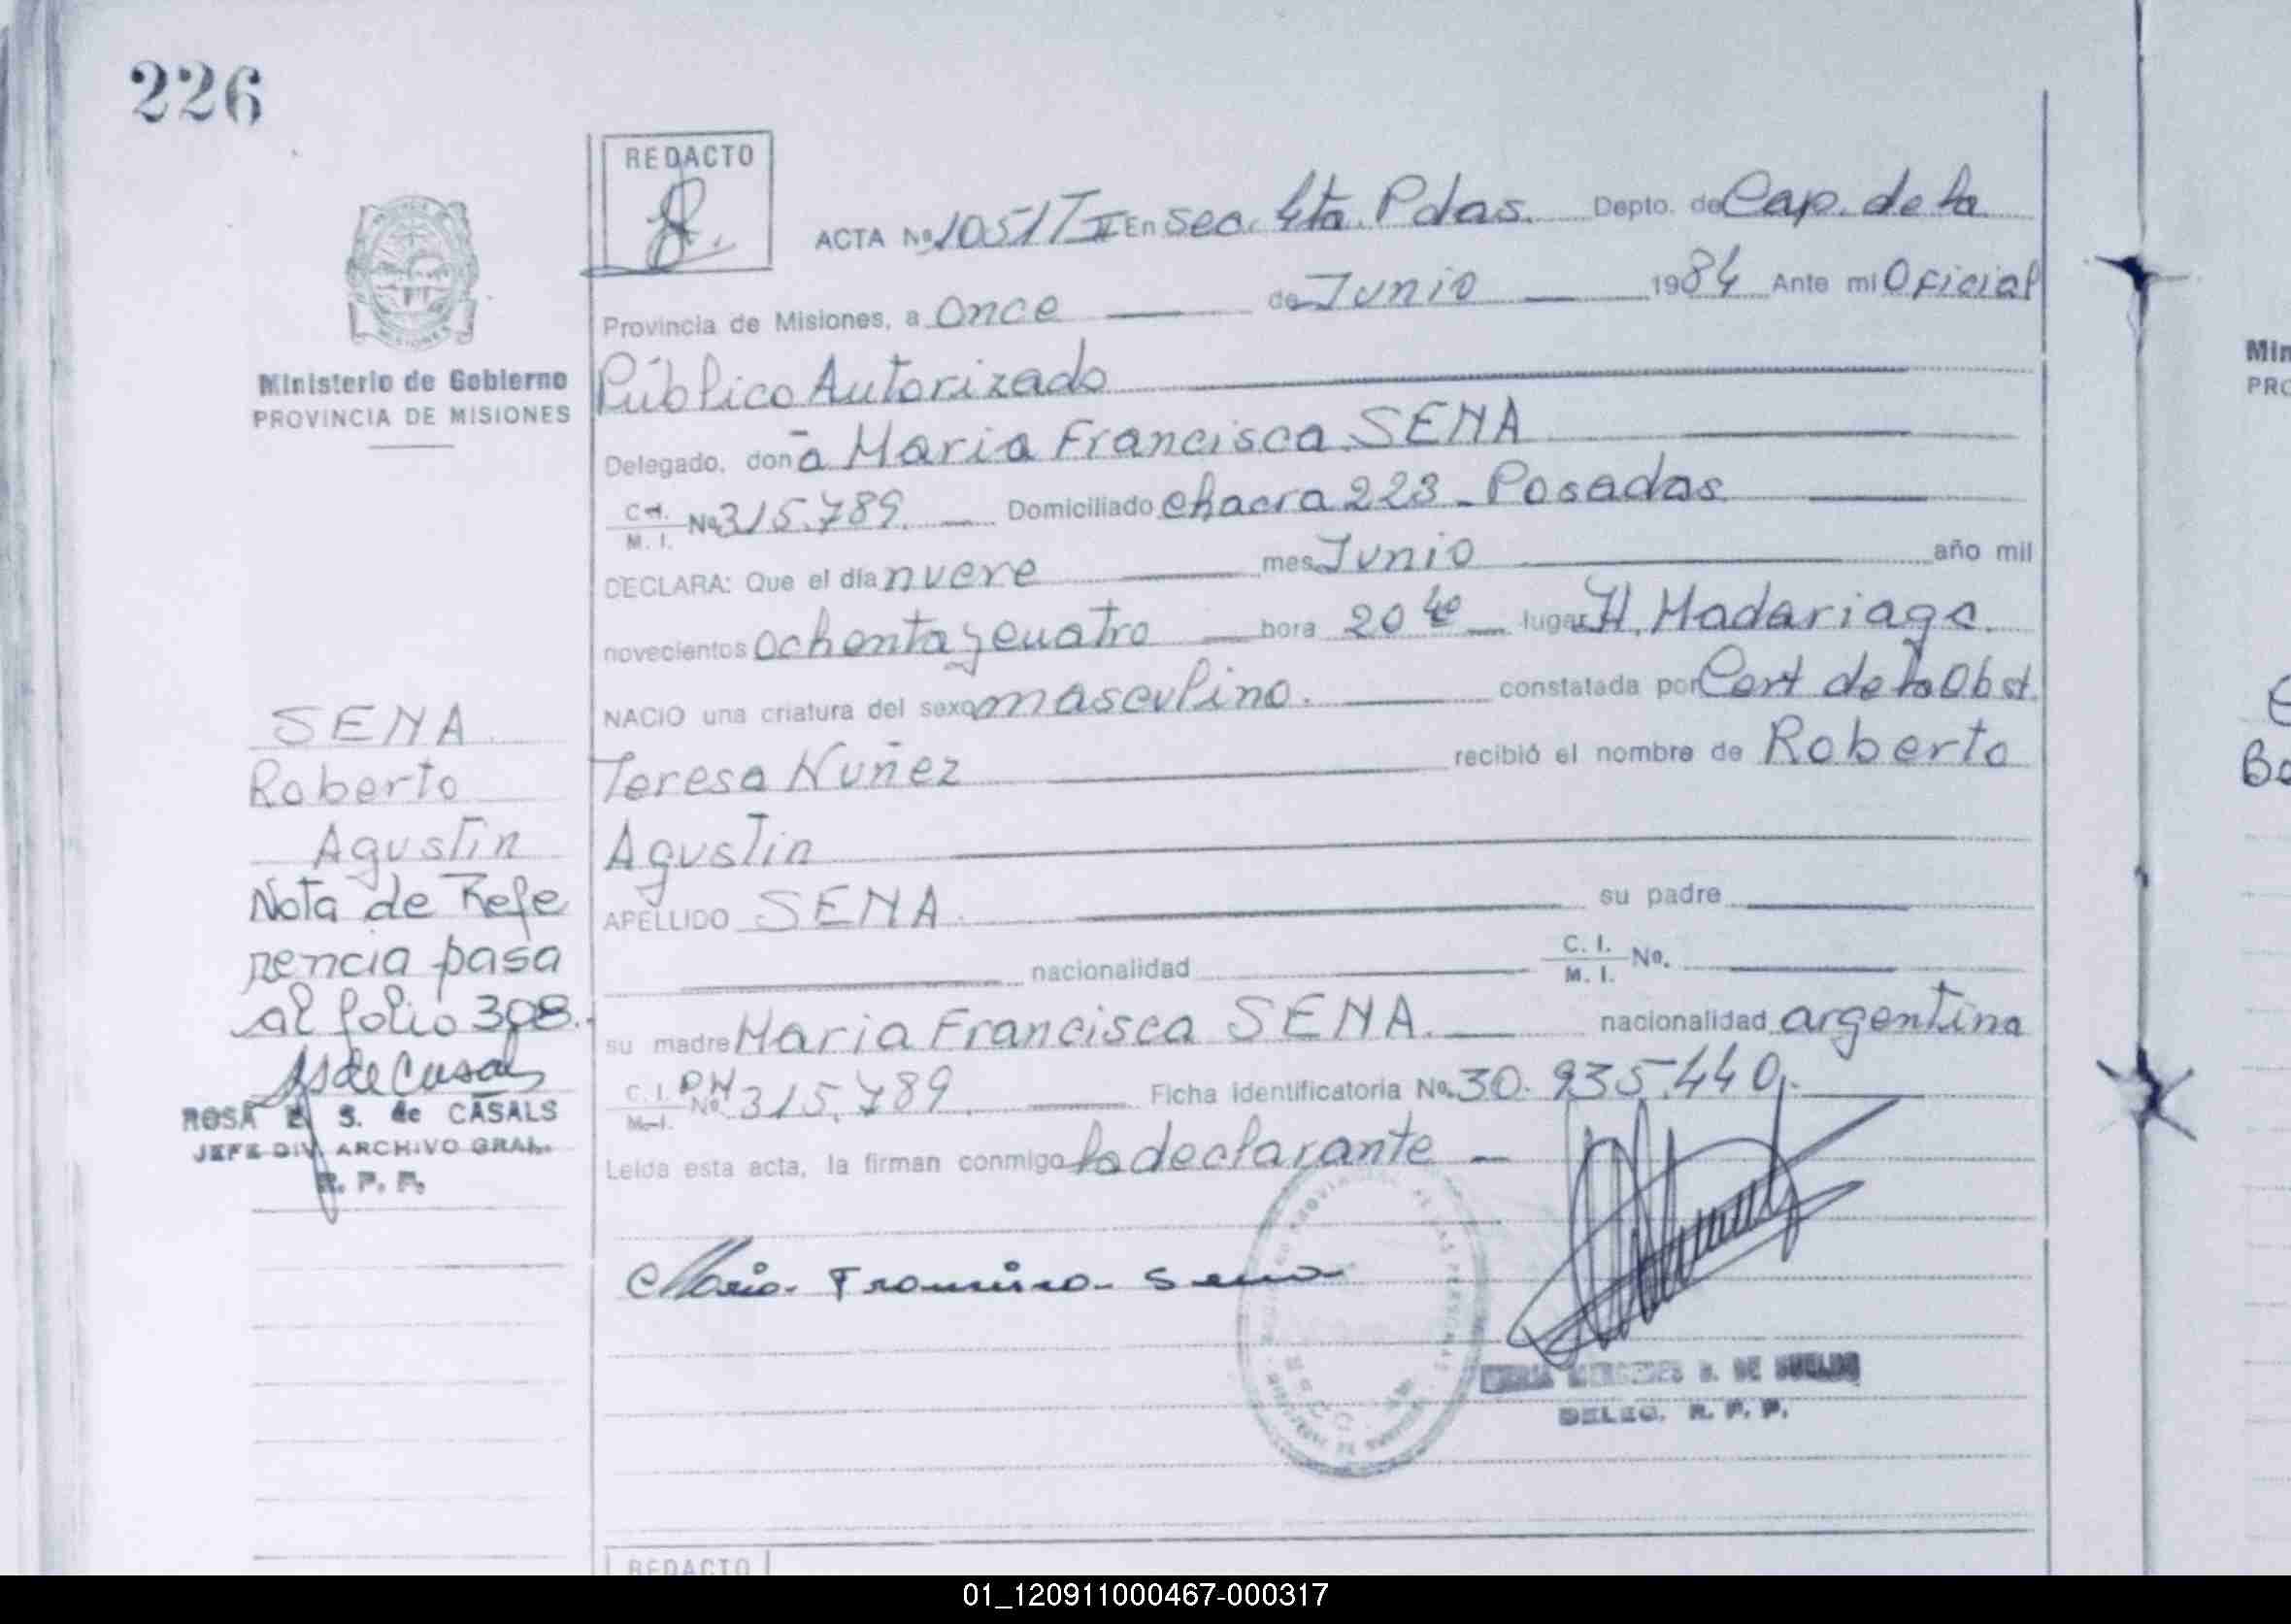 226
REDACTO
ACTA Nº 1051 T II En Sec. 4ta. Pdas. Depto. de Cap. de la
Provincia de Misiones, a once de Junio 1984 Ante mi Oficial
Público Autorizado
Delegado, doña Maria Francisca SENA
C.I. M. I. Nº 315.789. Domiciliado chacra 223 - Posadas
DECLARA: Que el día nueve mes Junio año mil
novecientos ochenta y cuatro hora 20 40 lugar H. Madariaga.
NACIO una criatura del sexo masculino. constatada por Cert de la Obst.
Teresa Nuñez recibió el nombre de Roberto
Agustin
APELLIDO SENA. su padre
nacionalidad C. I. M. I. Nº.
su madre Maria Francisca SENA. nacionalidad argentina
C. I. M. I. DNI Nº 315.789. Ficha identificatoria Nº. 30.935.440.
Leída esta acta, la firman conmigo la declarante
Maria Francisca Sena
DELEG. R. P. P.
Ministerio de Gobierno
PROVINCIA DE MISIONES
SENA
Roberto
Agustin
Nota de Refe
rencia pasa
al folio 308.
ROSA E. S. de CASALS
JEFE DIV. ARCHIVO GRAL.
R. P. P.
REDACTO
Min
PRO
01_120911000467-000317